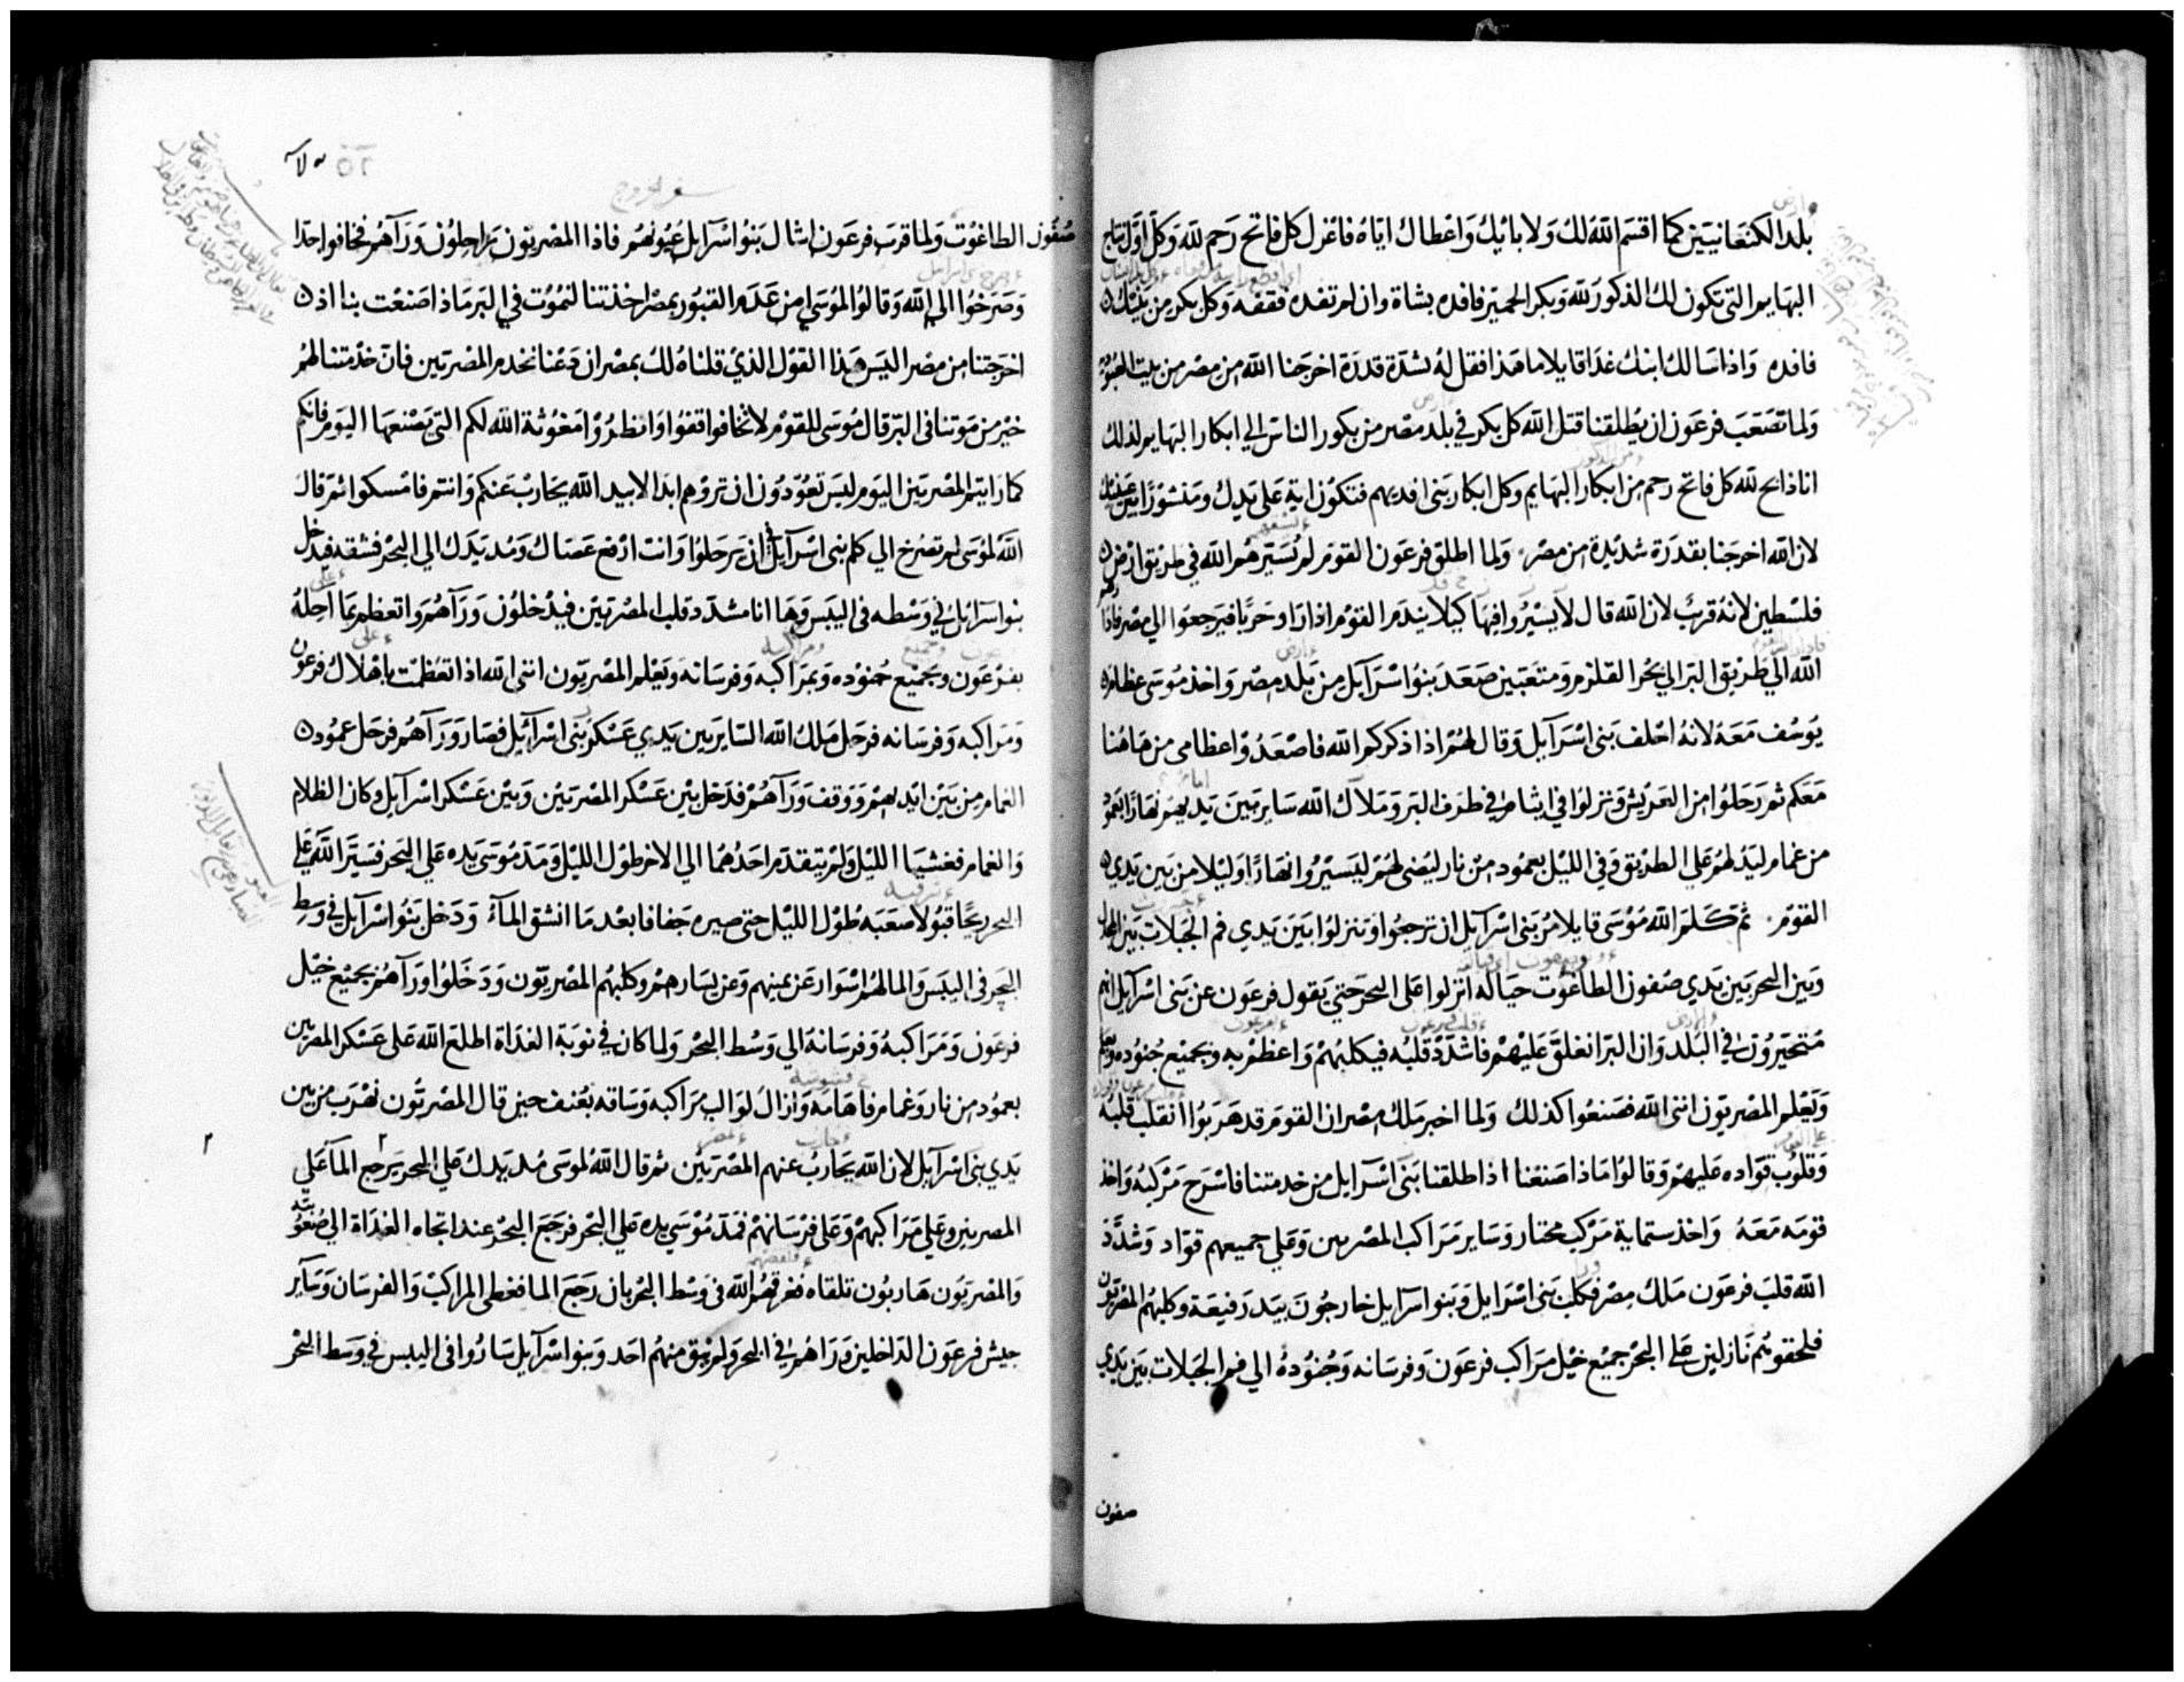 بلد الكنعانيين كما اقسم الله لك ولابائك واعطاك اياه فاعزل كل فاتح رحم لله وكل اول نتاج
البهايم التى تكون لك الذكور لله وبكر الحمير فافده بشاة وان لم تفده فقفه وكل بكر من بنيك
فافده واذا سالك ابنك غدا قايلا ما هذا فقل له بشدة قدرة اخرجنا الله من مصر من بيت العبودية
ولما تصعب فرعون ان يطلقنا قتل الله كل بكر في بلد مصر من بكور الناس الي ابكار البهايم لذلك
انا ذابح لله كل فاتح رحم من ابكار البهايم وكل ابكار بنى افديهم فتكون اية على يدك ومنشورا بين عينيك
لان الله اخرجنا بقدرة شديدة من مصر ولما اطلق فرعون القوم لم يسيرهم الله في طريق ارض
فلسطين لانه قريب لان الله قال لا يسيروا فيها كيلا يندم القوم اذا راوا حربا فيرجعوا الي مصر فادار
الله الي طريق البر الي بحر القلزم ومتعبين صعد بنوا اسرآيل من بلد مصر واخذ موسى عظام
يوسف معه لانه احلف بنى اسرآيل وقال لهم اذا ذكركم الله فاصعدوا عظامى من هاهنا
معكم ثم رحلوا من العريش ونزلوا في ايثام في طرف البر وملاك الله ساير بين يديهم نهارا بعمود
من غمام ليدلهم علي الطريق وفي الليل بعمود من نار ليضى لهم ليسيروا نهارا وليلا من بين يدي
القوم ثم كلم الله موسى قايلا مر بنى اسرآيل ان ترجعوا وتنزلوا بين يدي فم الجبلات بين المجدل
وبين البحر بين يدي صفون الطاغوت حياله انزلوا على البحر حتي يقول فرعون عن بنى اسرآيل انهم
متحيرون في البلد وان البر انغلق عليهم فاشدد قلبه فيكلبهم واعظم به وبجميع جنوده
ويعلم المصريون اننى الله فصنعوا كذلك ولما اخبر ملك مصر ان القوم قد هربوا انقلب قلبه
وقلوب قواده عليهم وقالوا ماذا صنعنا اذ اطلقنا بنى اسرآيل من خدمتنا فاسرج مركبه واخذ
قومه معه واخذ ستماية مركب مختار وساير مراكب المصريين وعلي جميعهم قواد وشدد
الله قلب فرعون ملك مصر فكلب بنى اسرايل وبنوا اسرآيل خارجون بيد رفيعة وكلبهم المصريون
فلحقوهم نازلين على البحر جميع خيل مراكب فرعون وفرسانه وجنوده الي فم الجبلات بين يدي
صفون
٥٢
سفر الخروج
صفون الطاغوت ولما قرب فرعون اشال بنوا اسرآيل عيونهم فاذا المصريون راحلون ورآهم فخافوا جدا
وصرخوا الى الله وقالوا لموسي من عدم القبور بمصر اخذتنا لنموت في البر ماذا صنعت بنا اذ
اخرجتنا من مصر اليس هذا القول الذي قلناه لك بمصر ان دعنا نخدم المصريين فان خدمتنا لهم
خير من موتنا فى البر قال موسى للقوم لا تخافوا قفوا وانظروا مغوثة الله لكم التي يصنعها اليوم فانكم
كما رايتم المصريين اليوم ليس تعودون ان تروهم ابدا لابد الله يحارب عنكم وانتم فامسكوا ثم قال
الله لموسى لم تصرخ الي كلم بنى اسرآيل ان يرحلوا وانت ارفع عصاك ومد يدك الي البحر فشقه فيدخل
بنوا اسرآيل في وسطه فى اليبس وها انا مشدد قلب المصريين فيدخلون ورآهم واتعظم بما احله
بفرعون وبجميع جنوده وبمراكبه وفرسانه ويعلم المصريون اننى الله اذا تعظمت باهلاك فرعون
ومراكبه وفرسانه فرحل ملك الله الساير بين يدي عسكر بنى اسرآئيل فصار ورآهم فرحل عمود
الغمام من بين ايديهم ووقف ورآهم فدخل بين عسكر المصريين وبين عسكر اسرآيل وكان الظلام
والغمام فغشيا الليل ولم يتقدم احدهما الي الاخر طول الليل ومد موسى يده علي البحر فسير الله على
البحر ريحا قبولا صعبه طول الليل حتى صيره جفافا بعد ما انشق المآء ودخل بنوا اسرآيل في وسط
البحر فى اليبس والما لهم اسوار عن يمينهم وعن يسارهم وكلبهم المصريون ودخلوا ورآهم بجميع خيل
فرعون ومراكبه وفرسانه الي وسط البحر ولما كان في نوبة الغداة اطلع الله على عسكر المصريين
بعمود من نار وغمام فاهامه وازال لوالب مراكبه وساقه بعنف حين قال المصريون نهرب من بين
يدي بنى اسرآيل لان الله يحارب عنهم المصريين ثم قال الله لموسى مد يدك علي البحر يرجع المآ علي
المصريين وعلي مراكبهم وعلى فرسانهم فمد موسي يده علي البحر فرجع البحر عند اتجاه الغداة الي صعوبته
والمصريون هاربون تلقاه فغرقهم الله فى وسط البحر بان رجع الما فغطى المراكب والفرسان وساير
جيش فرعون الداخلين وراهم في البحر ولم يبق منهم احد وبنوا اسرآيل ساروا فى اليبس في وسط البحر